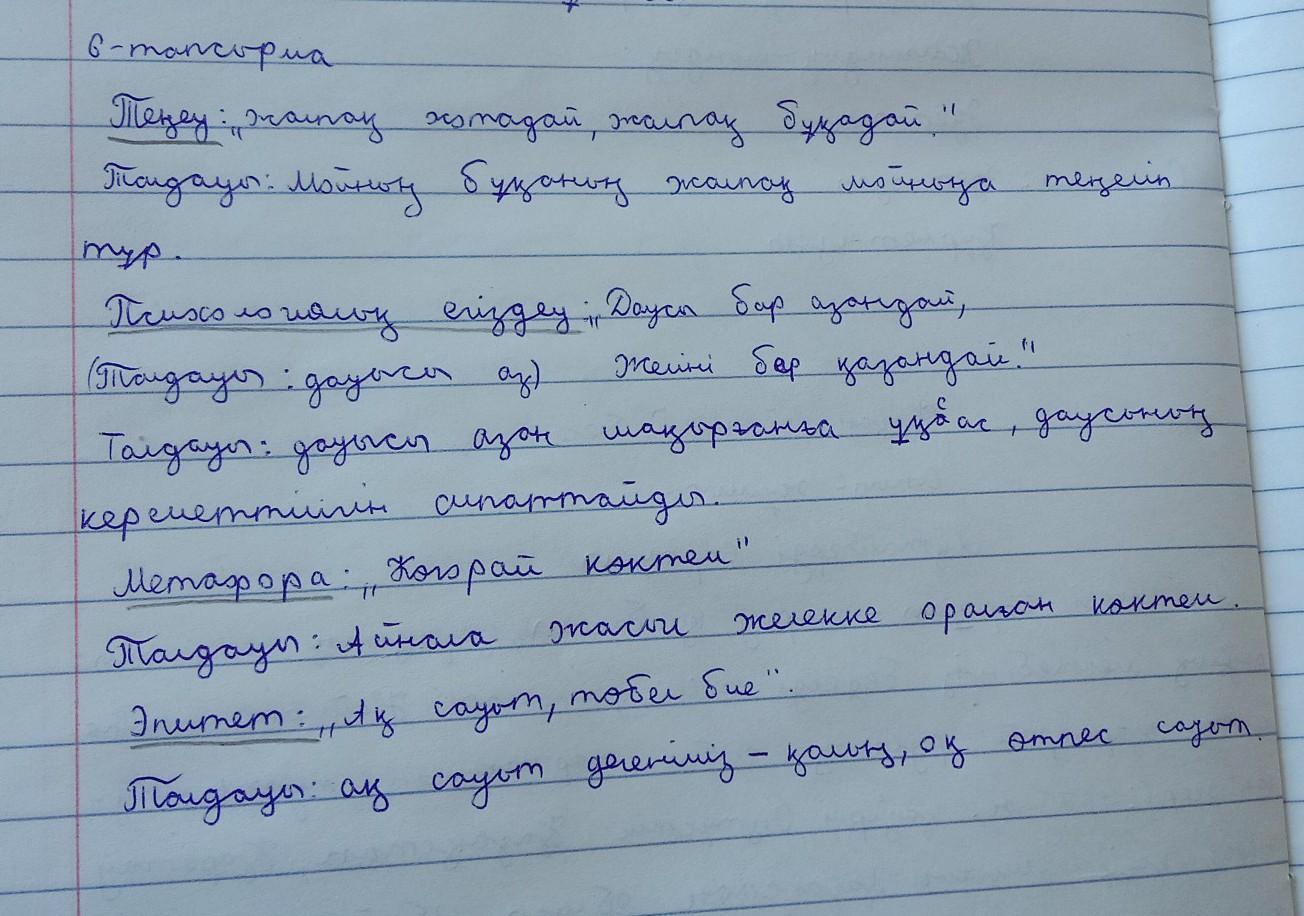 6-тапсырма
Теңеу: „жалпақ жотадай, жалпақ бұқадай."
Талдауы: Мойның бұқаның жалпақ мойныңа теңеліп
тұр.
Психологиялық егіздеу: „Даусы бар азандай,
(Талдауы: дауысы аз) Желіні бар қазандай."
Талдауы: дауысы азан шақырғанға ұқсас, даусының
кереметтілігін сипаттайды.
Метафора: „Көгорай көктем"
Талдауы: Айнала жасыл желекке оралған көктем.
Эпитет: „Ақ сауыт, төбел бие".
Талдауы: ақ сауыт дегеніміз – қалың, оқ өтпес сауыт.